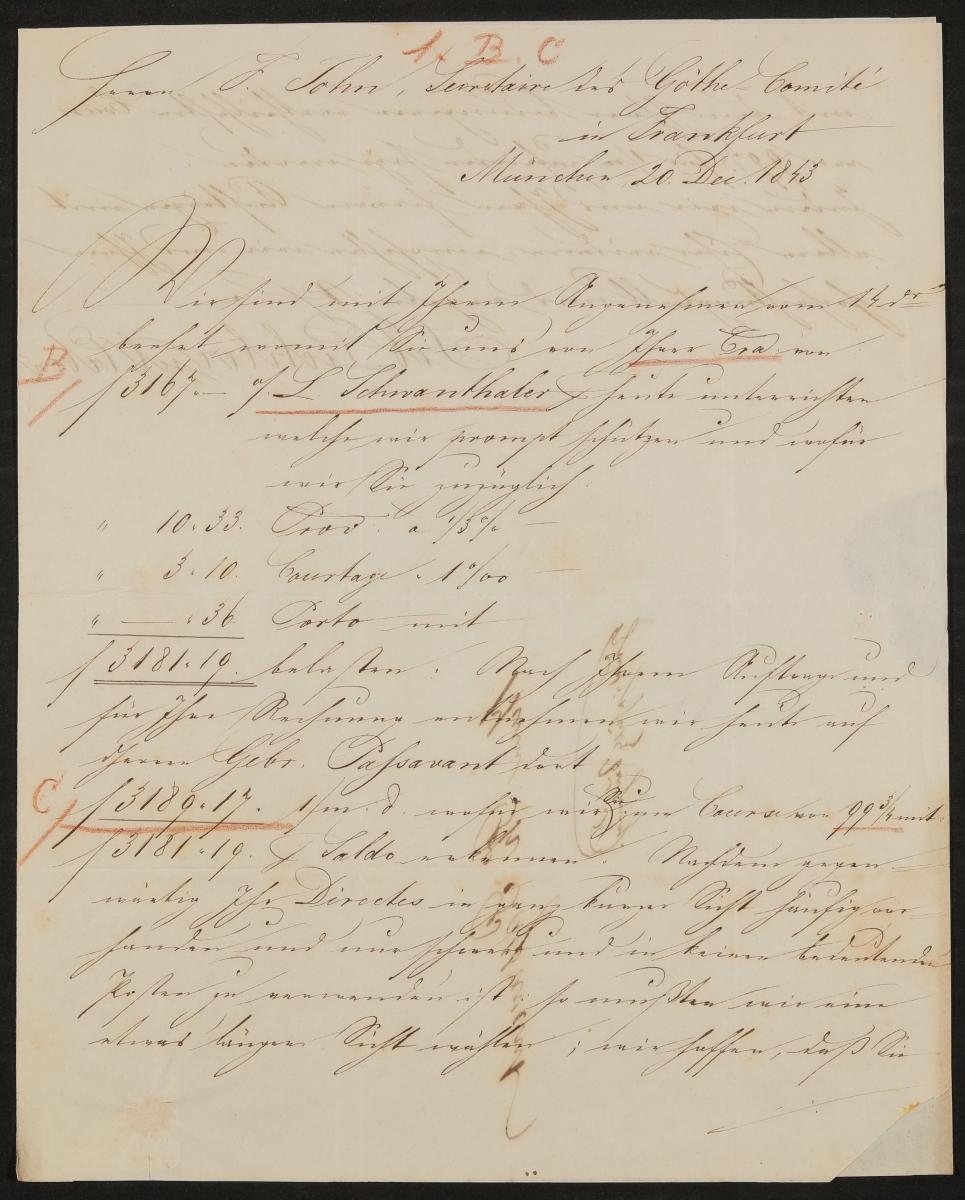 1. B. C
Herrn F. John, Secretaire des Göthe-Comité
in Frankfurt
München, 20. Dec. 1843
Wir sind mit Ihrem Angenehmen vom 14 ds
beehrt, womit Sie uns von Ihrer Tra. von
B
f 3167.— o/. L. Schwanthaler heute unterrichten
welche wir prompt schützen und wofür
wir Sie zuzüglich:
" 10.33. Prov. a 1/3 % —
" 3.10. Courtage " 1 ‰ —
" — "36. Porto mit
f 3181.19. belasten. Nach Ihrem Auftrage und
für Ihre Rechnung entnehmen wir heute auf
Herren Gebr. Passavant dort
C
f 3189.17. 1/m. d. wofür wir Sie zum Course von 99 3/4 mit
f 3181.19. Saldo erkennen. Nachdem gegen-
wärtig Ihr Directes in ganz kurzer Sicht häufig vor-
handen und nur schwer und in keinen bedeutenden
Posten zu verwenden ist, so mußten wir eine
etwas längere Sicht wählen; wir hoffen, daß Sie